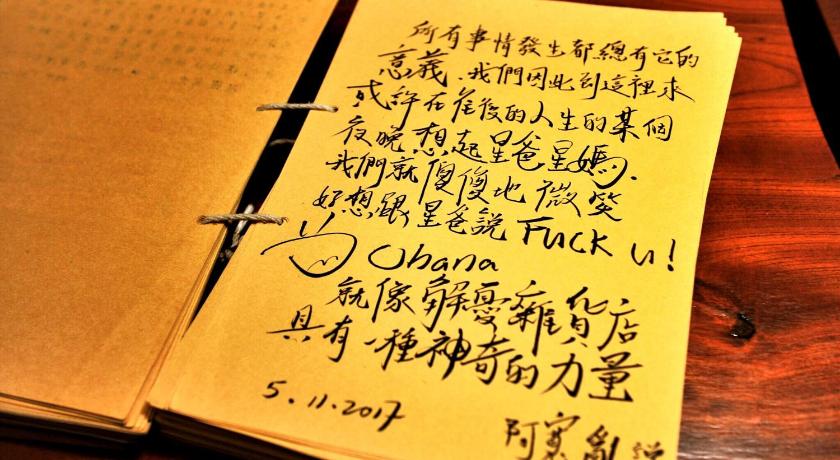 所有事情發生都總有它的
意義．我們因此到這裡來
或許在往後的人生的某個
夜晚想起星爸星媽．
我們就傻傻地微笑
好想跟星爸說 FUCK U!
Ohana
就像解憂雜貨店
具有一種神奇的力量
5.11.2017
阿寞亂說